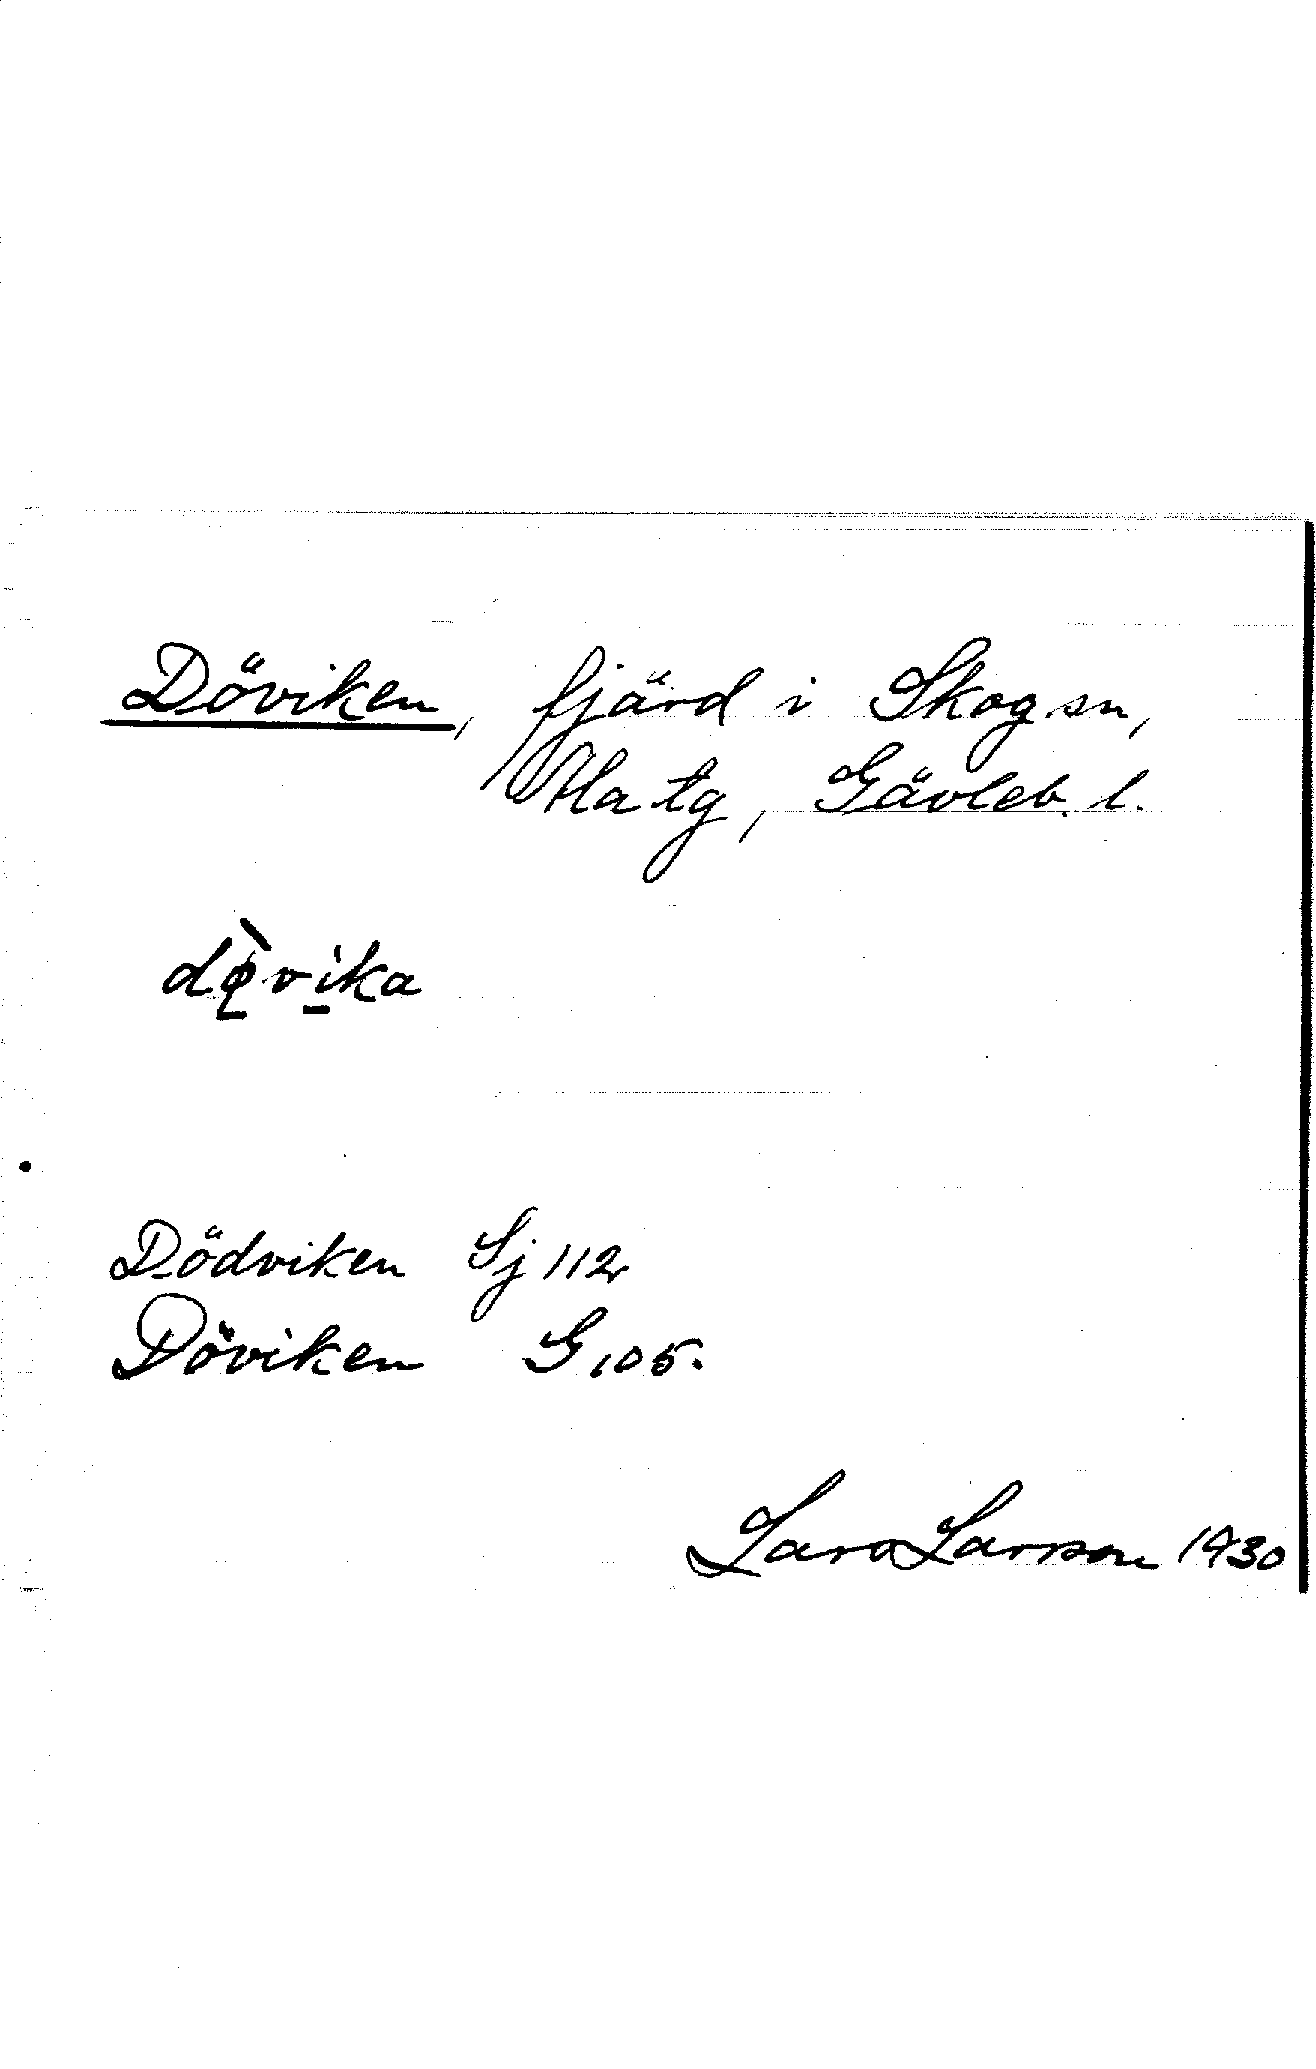 Döviken, fjärd i Skog sn,
Ala tg, Gävleb. l.
dø̀vika
Dödviken Sj 112
Döviken G 105.
Lars Larsson 1930